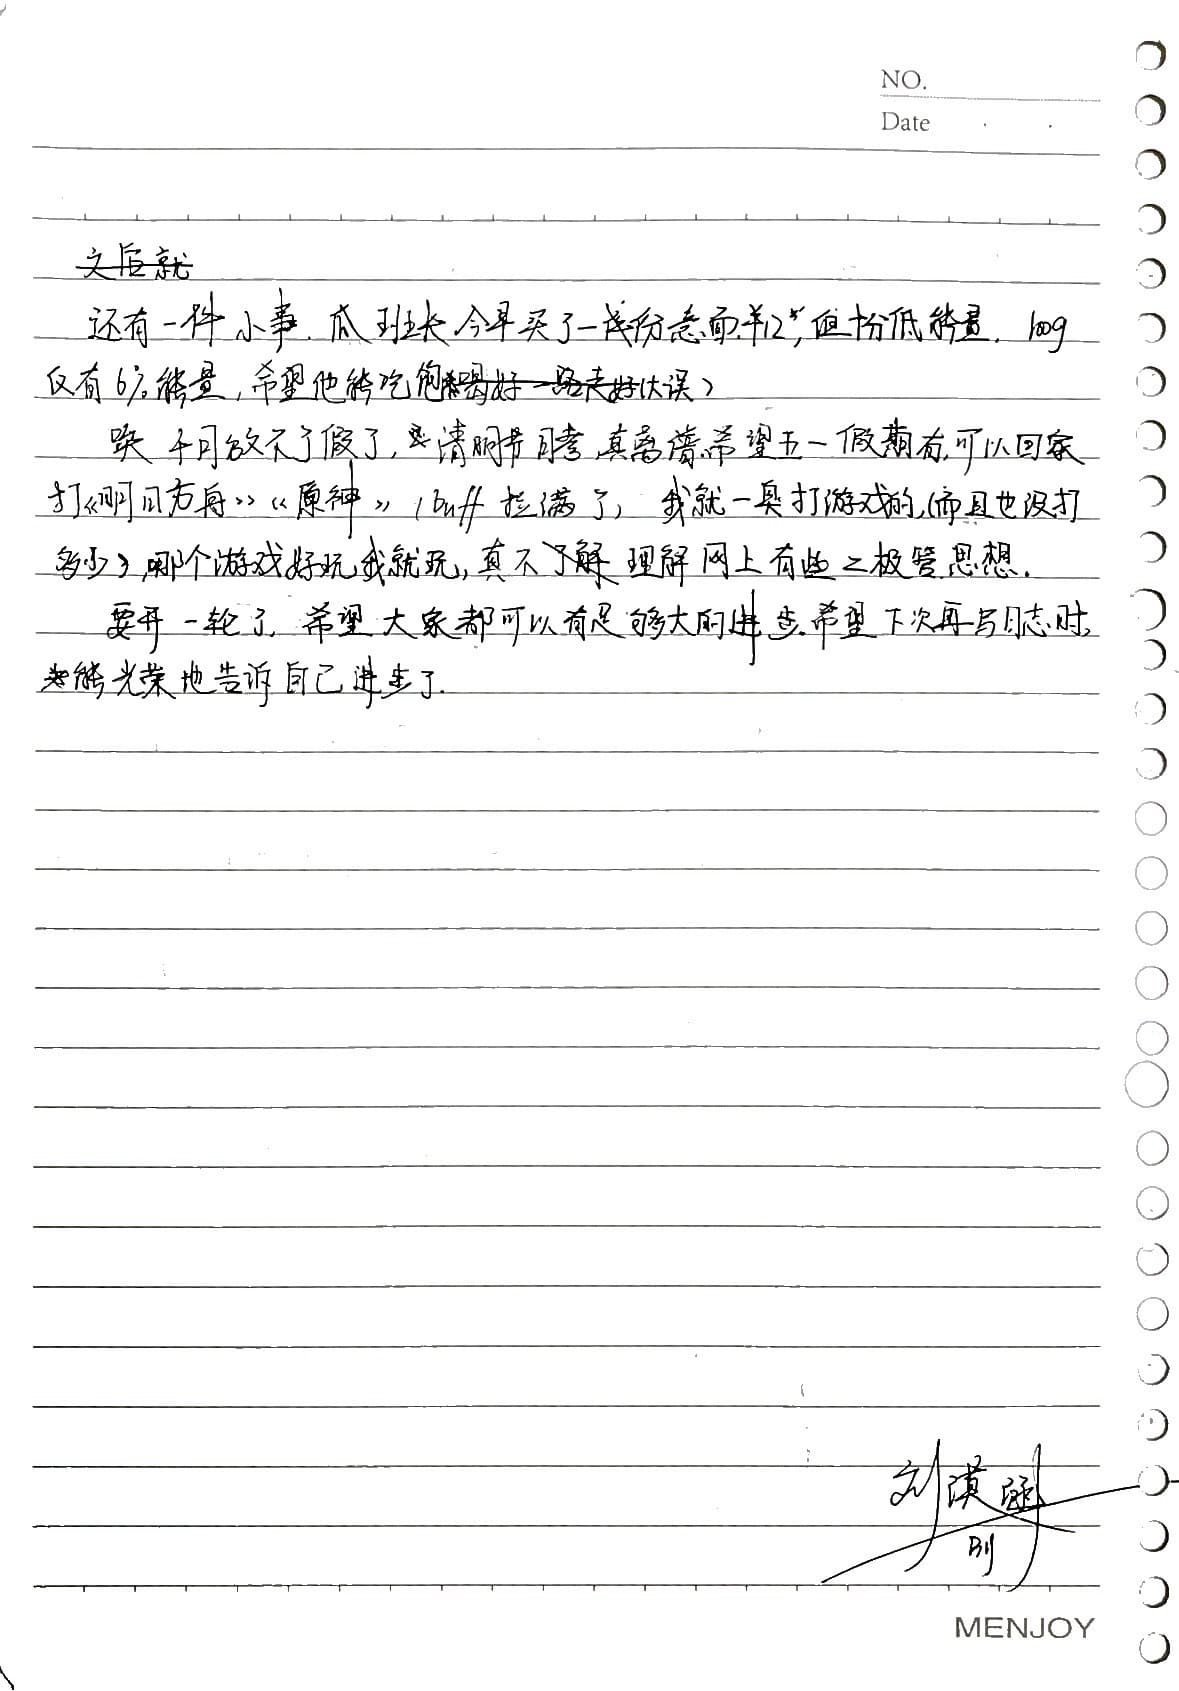 NO.
Date
文后就
还有一件小事.瓜班长今早买了一份意面.半12,但十份低能量. 100g
仅有6%能量,希望他能吃饱喝好一路走好(大误)
四月放不了假了,清明节月考,真离谱.希望五一假期有,可以回家
打《明日方舟》《原神》(buff拉满了) 我就一臭打游戏的,(而且也没打
多少),哪个游戏好玩我就玩,真不了解理解网上有些之极管思想.
要开一轮了,希望大家都可以有足够大的进步.希望下次再写日志时,
能光荣地告诉自己进步了.
刘漠
MENJOY